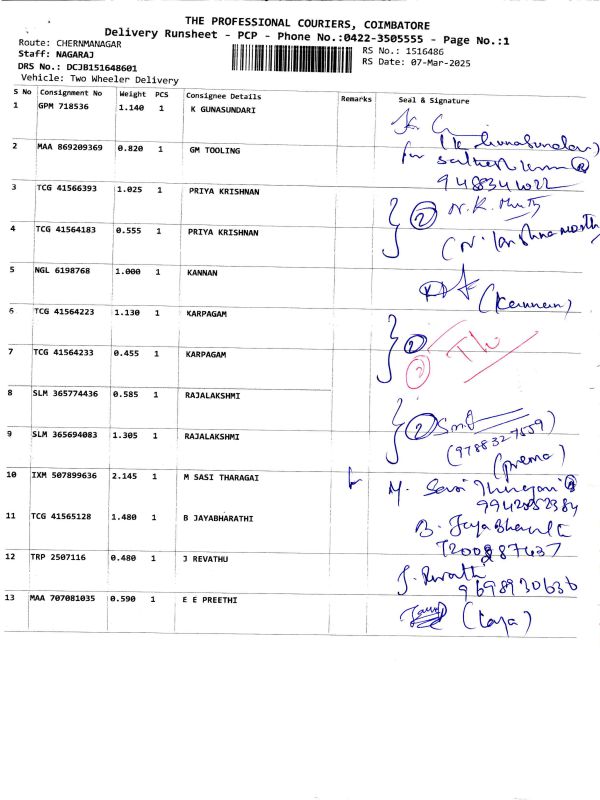 THE PROFESSIONAL COURIERS, COIMBATORE
Delivery Runsheet - PCP - Phone No.:0422-3505555 - Page No.:1
Route: CHERNMANAGAR
RS No.: 1516486
Staff: NAGARAJ
RS Date: 07-Mar-2025
DRS No.: DCJB151648601
Vehicle: Two Wheeler Delivery
S No Consignment No Weight PCS Consignee Details Remarks Seal & Signature
1 GPM 718536 1.140 1 K GUNASUNDARI
(K Gunasundari)
2 MAA 869209369 0.820 1 GM TOOLING
for
3 TCG 41566393 1.025 1 PRIYA KRISHNAN 2
4 TCG 41564183 0.555 1 PRIYA KRISHNAN
5 NGL 6198768 1.000 1 KANNAN
(Kannan)
6 TCG 41564223 1.130 1 KARPAGAM 2
7 TCG 41564233 0.455 1 KARPAGAM 2
8 SLM 365774436 0.585 1 RAJALAKSHMI 2
9 SLM 365694083 1.305 1 RAJALAKSHMI (9788327559)
(prema)
10 IXM 507899636 2.145 1 M SASI THARAGAI M. Sasi
9942052384
11 TCG 41565128 1.480 1 B JAYABHARATHI B. Jaya
12 TRP 2507116 0.480 1 J REVATHU J. Revathi
9698930636
13 MAA 707081035 0.590 1 E E PREETHI